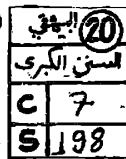 20 البيهقي
السنن الكبرى
C 7
S 198